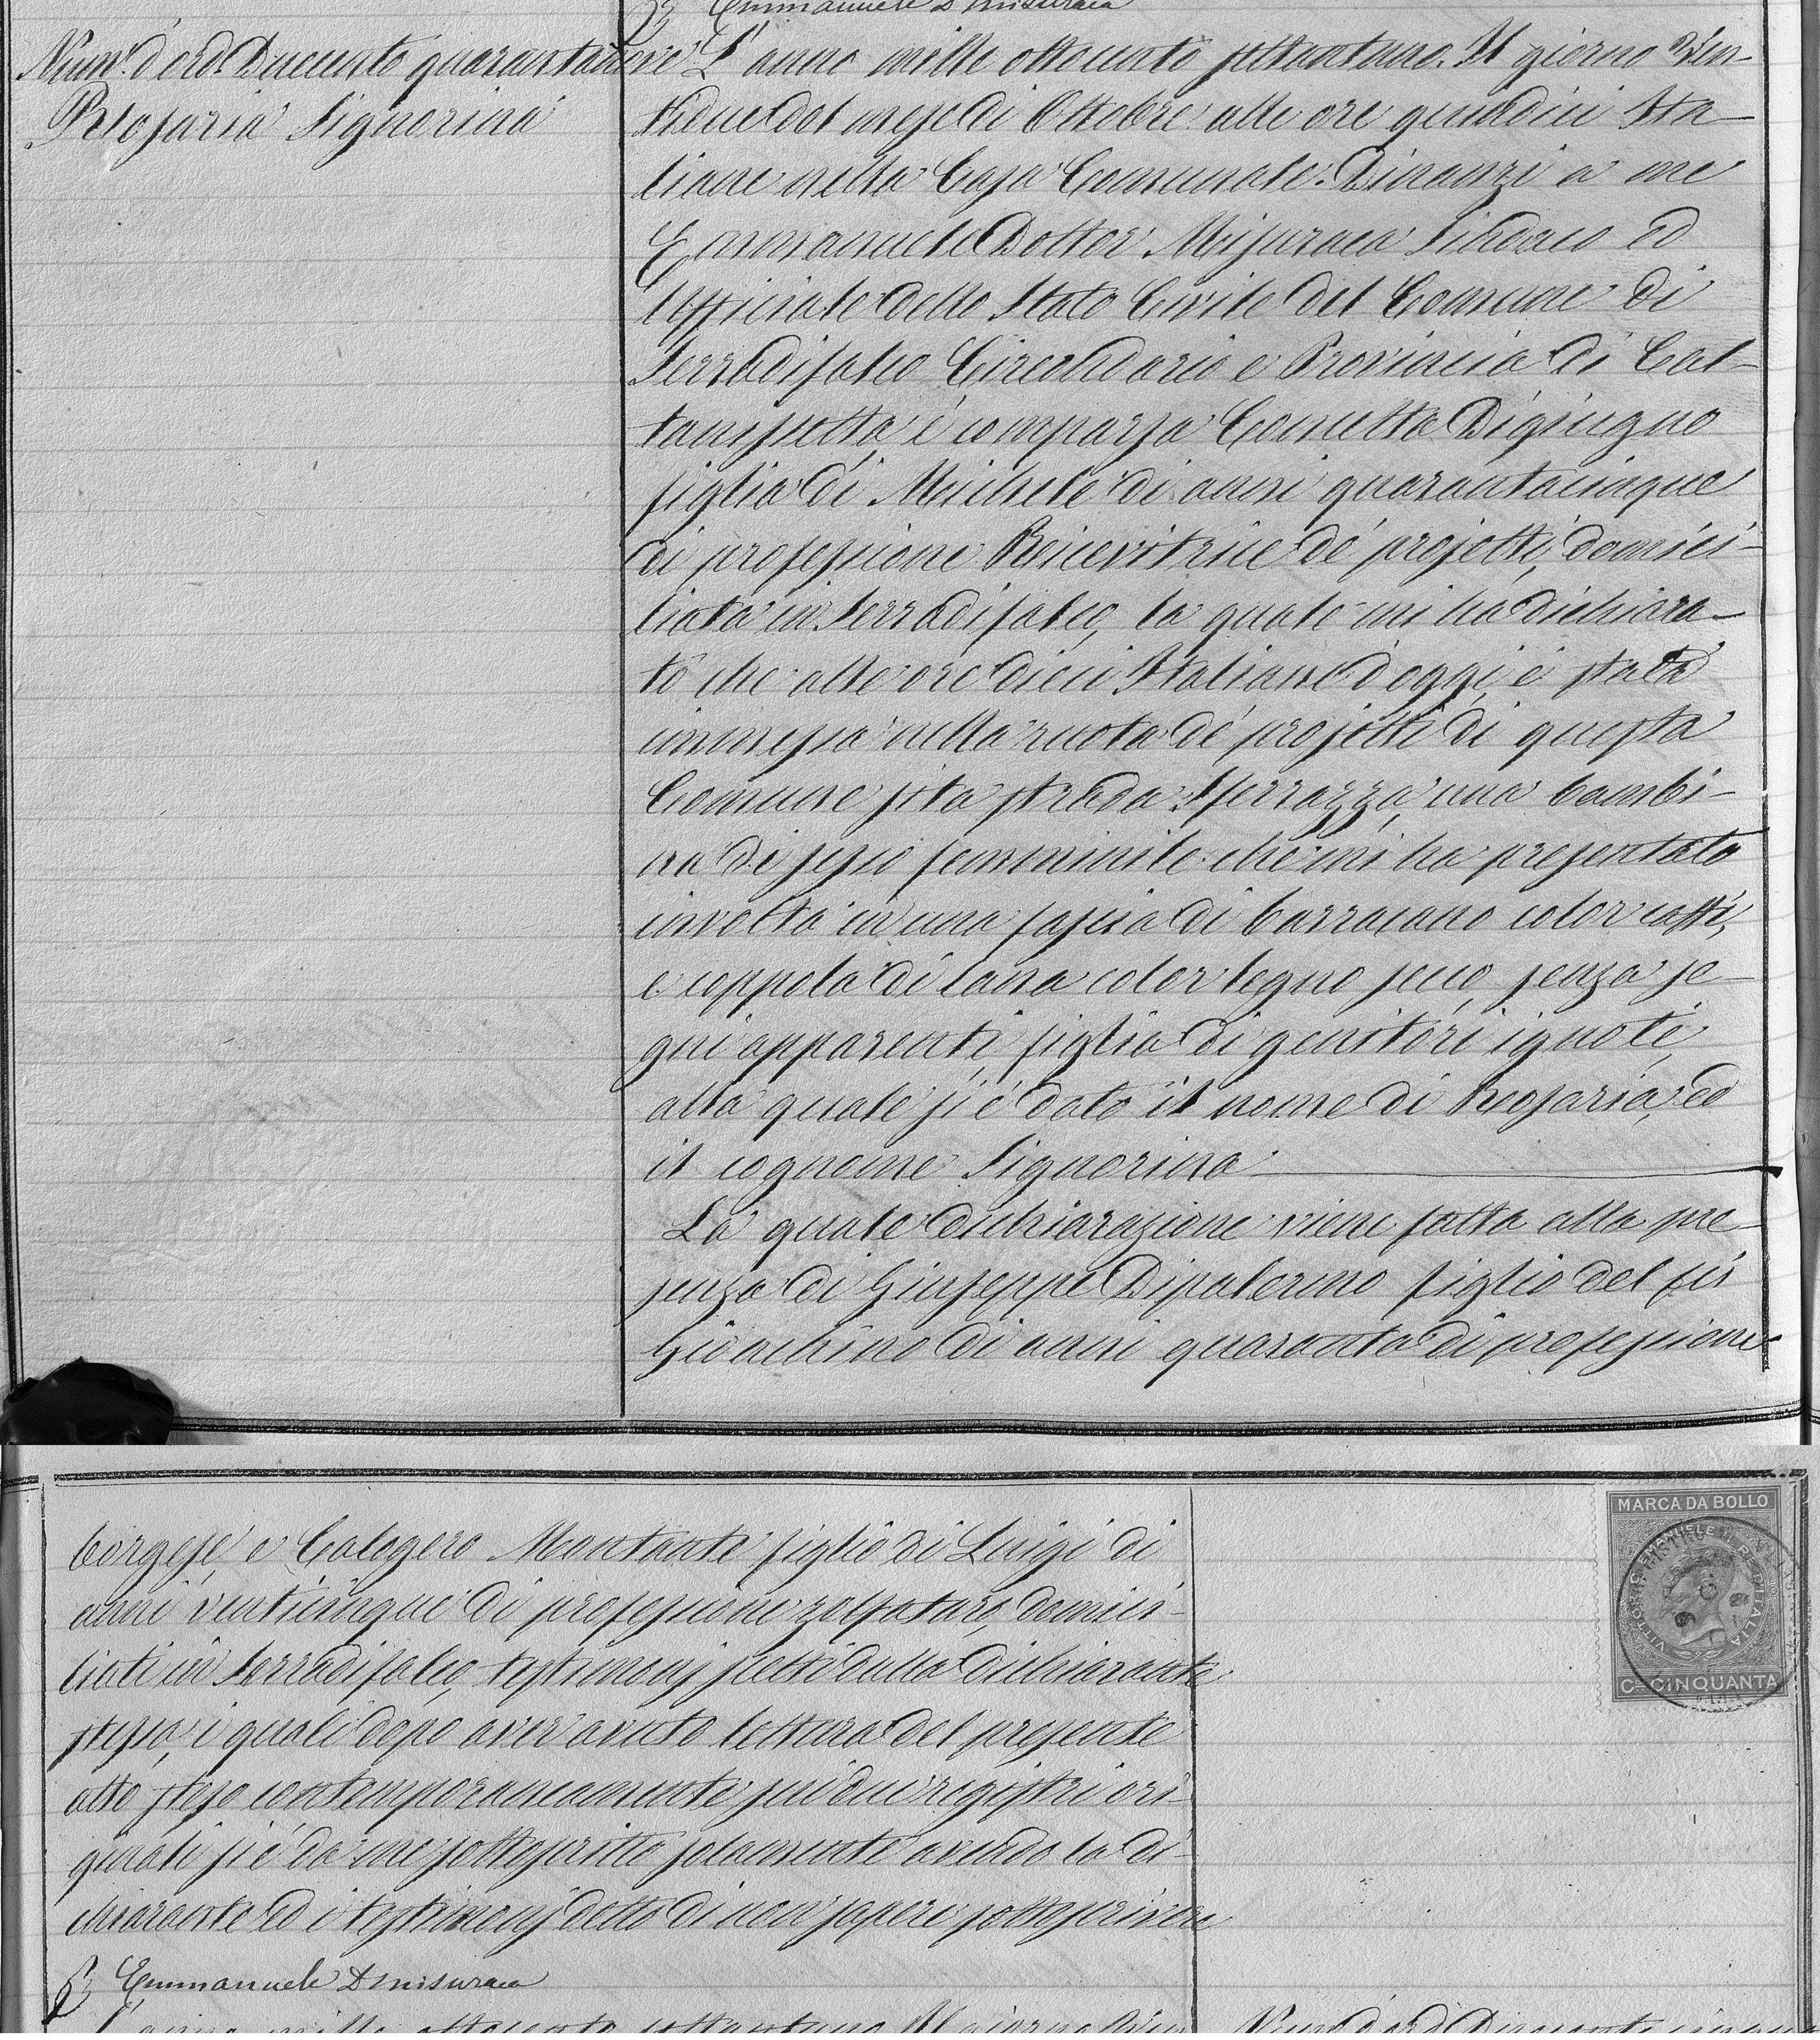 Emmanuele Dr Misuraca
Num.° d'ord. Duecento quarantanove
Rosaria Signorina
L'anno mille ottocento settantuno. Il giorno Ven-
tidue del mese di Ottobre alle ore quindici Ita-
liane nella Casa Comunale. Dinanzi a me
Emmanuele Dottor Misuraca Sindaco ed
Uffiziale dello Stato Civile del Comune di
Serradifalco Circondario e Provincia di Cal-
tanissetta, è comparsa Concetta Digiugno
figlia di Michele di anni quarantacinque
di professione Ricevitrice de' projetti, domici-
liata in Serradifalco, la quale mi ha dichiara-
to che alle ore dieci Italiane d'oggi è stata
immessa nella ruota de' projetti di questa
Comune sita strada Sferrazza, una bambi-
na di sesso femminile che mi ha presentato
involta in una fascia di barracano color caffè,
e coppola di lana color legno secco, senza se-
gni apparenti, figlia di genitori ignoti,
alla quale si è dato il nome di Rosaria, ed
il cognome Signorina
La quale dichiarazione viene fatta alla pre-
senza di Giuseppe Dipalermo figlio del fu
Gioachino di anni quaranta di professione
borgese, e Calogero Montante figlio di Luigi di
anni venticinque di professione zolfataro, domici-
liati in Serradifalco, testimonj scelti dalla dichiarante
stessa, i quali dopo aver avuto lettura del presente
atto steso contemporaneamente sui due registri ori-
ginali si è da me sottoscritto solamente avendo la di-
chiarante ed i testimonj detto di non sapere sottoscrivere
Emmanuele Dr Misuraca
L'anno mille ottocento settantuno Il giorno Ven
Num.° d'ord. Duecento cinquanta
MARCA DA BOLLO
VITTORIO EMANUELE II RE D'ITALIA
C.mi CINQUANTA